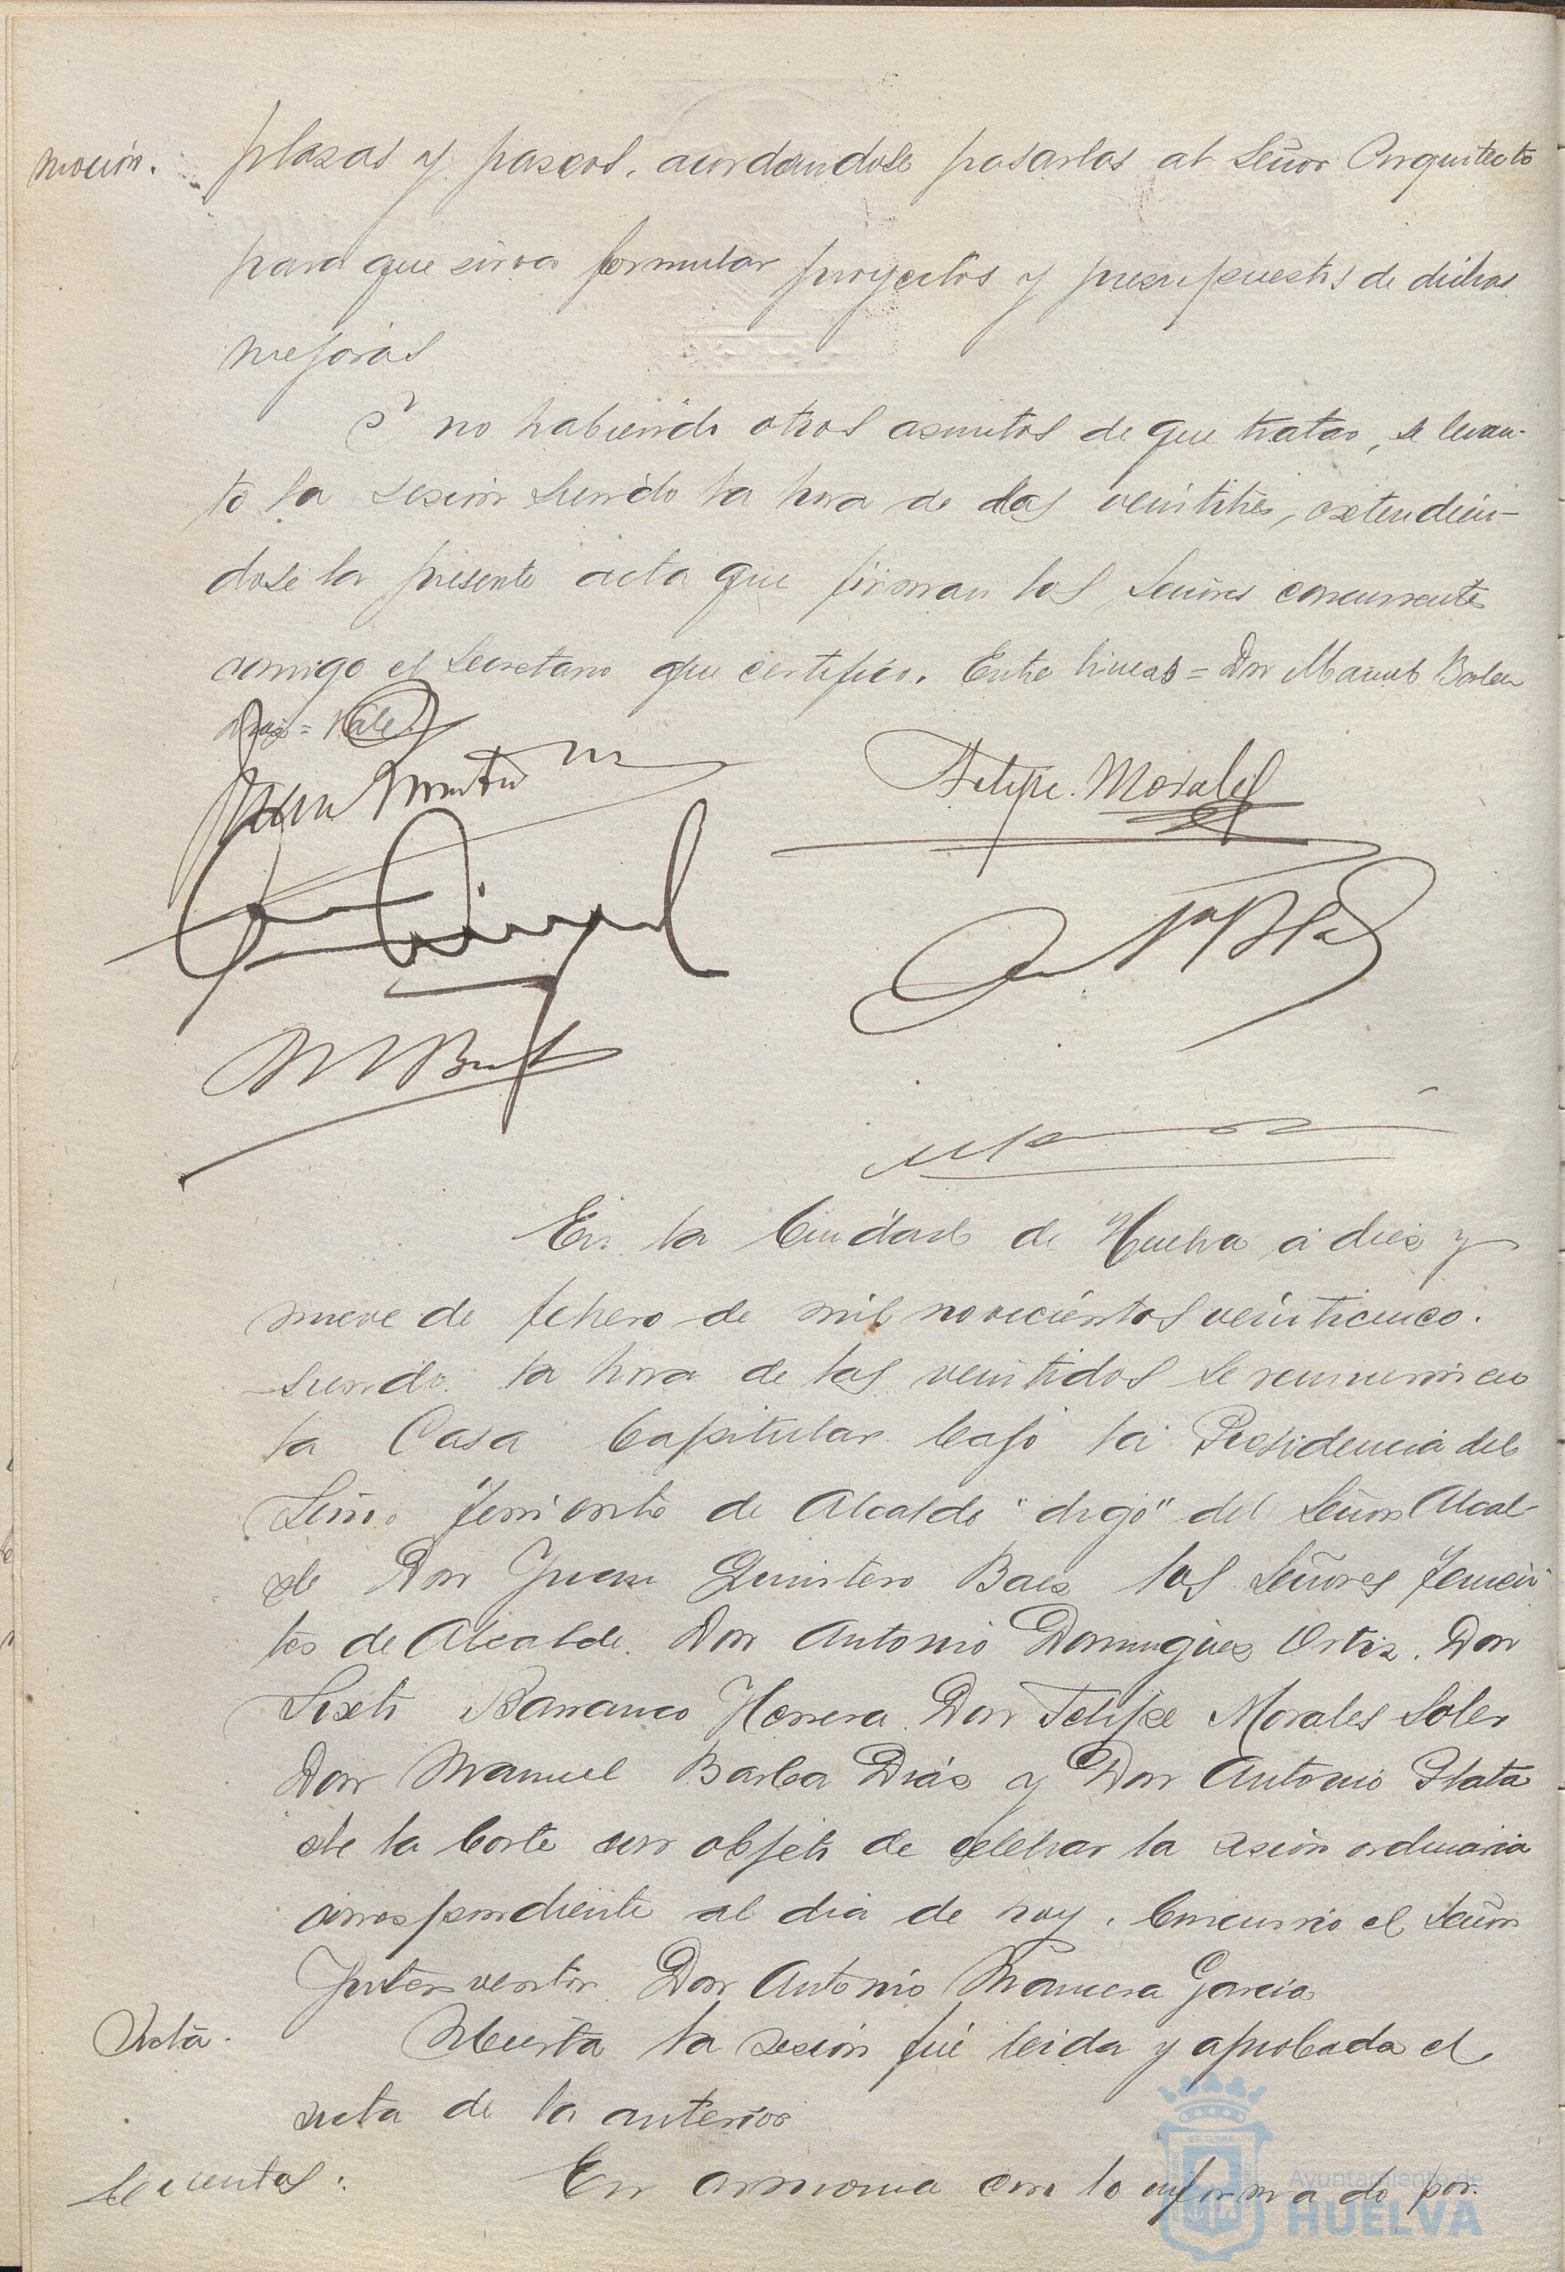 moción. plazas y paseos, acordandose pasarlas al Señor Arquitecto
para que sirva formular proyectos y presupuestos de dichas
mejoras
Y no habiendo otros asuntos de que tratar, se levan-
tó la sesión siendo la hora de las veintitrés, extendien-
dose la presente acta que firman los Señores concurrentes
conmigo el Secretario que certifico. Entre lineas = Don Manuel Barba
Diaz = Vale
Felipe Morales
En la Ciudad de Huelva a diez y
nueve de febrero de mil novecientos veinticinco.
siendo la hora de las veintidos se reunieron en
la Casa Capitular bajo la Presidencia del
Señor Teniente de Alcalde "digo" del Señor Alcal-
de Don Juan Quintero Baez los Señores Tenien-
tes de Alcalde Don Antonio Dominguez Ortiz. Don
Sixto Barranco Herrera Don Felipe Morales Soler
Don Manuel Barba Diáz y Don Antonio Plata
de la Corte con objeto de celebrar la sesión ordinaria
correspondiente al dia de hoy. Concurrio el Señor
Interventor Don Antonio Mancera Garcia
Acta. Abierta la sesión fué leida y aprobada el
acta de la anterior
Cuentas: En armonia con lo informado por
Ayuntamiento de
HUELVA